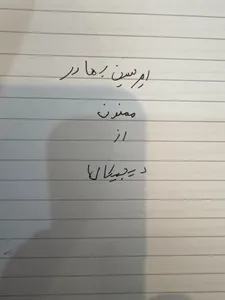 امیرحسین بهادر
ممنون
از
دیجیکالا